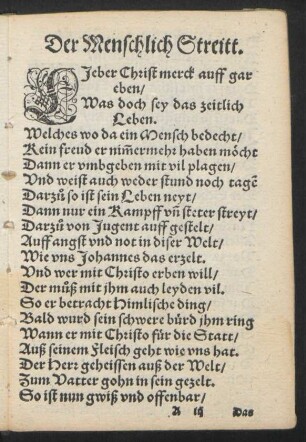 Der Menschlich Streitt.
LJeber Christ merck auff gar
eben/
Was doch sey das zeitlich
Leben.
Welches wo da ein Mensch bedecht/
Kein freud er nim̃ermehr haben möcht
Dann er vmbgeben mit vil plagen/
Vnd weist auch weder stund noch tagẽ
Darzů so ist sein Leben neyt/
Dann nur ein Kampff vñ steter streyt/
Darzů von Jugent auff gestelt/
Auff angst vnd not in diser Welt/
Wie vns Johannes das erzelt.
Vnd wer mit Christo erben will/
Der můß mit jhm auch leyden vil.
So er betracht Himlische ding/
Bald wurd sein schwere bürd jhm ring
Wann er mit Christo für die Statt/
Auß seinem Fleisch geht wie vns hat.
Der Herr geheissen auß der Welt/
Zum Vatter gohn in sein gezelt.
So ist nun gwiß vnd offenbar/
A iij Das